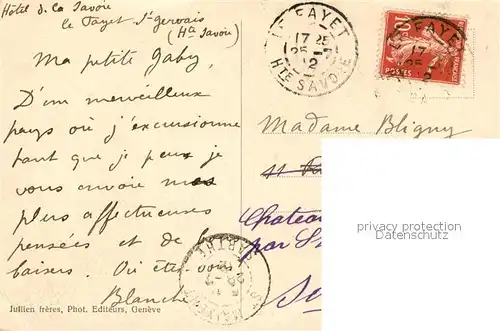 Hôtel de la Savoie
le Fayet St-Gervais
(Hte Savoie)
Ma petite Gaby,
D'un merveilleux
pays où j'excursionne
tant que je peux je
vous envoie mes
plus affectueuses
pensées et de
baisers. Où êtes-vous
Blanche
Jullien frères, Phot. Editeurs, Genève
LE FAYET
17 25
25 -7
12
HTE SAVOIE
10
POSTES
LE FAYET
17
25
12
Madame Bligny
11
Chateau
par S
privacy protection
Datenschutz
SARTHE